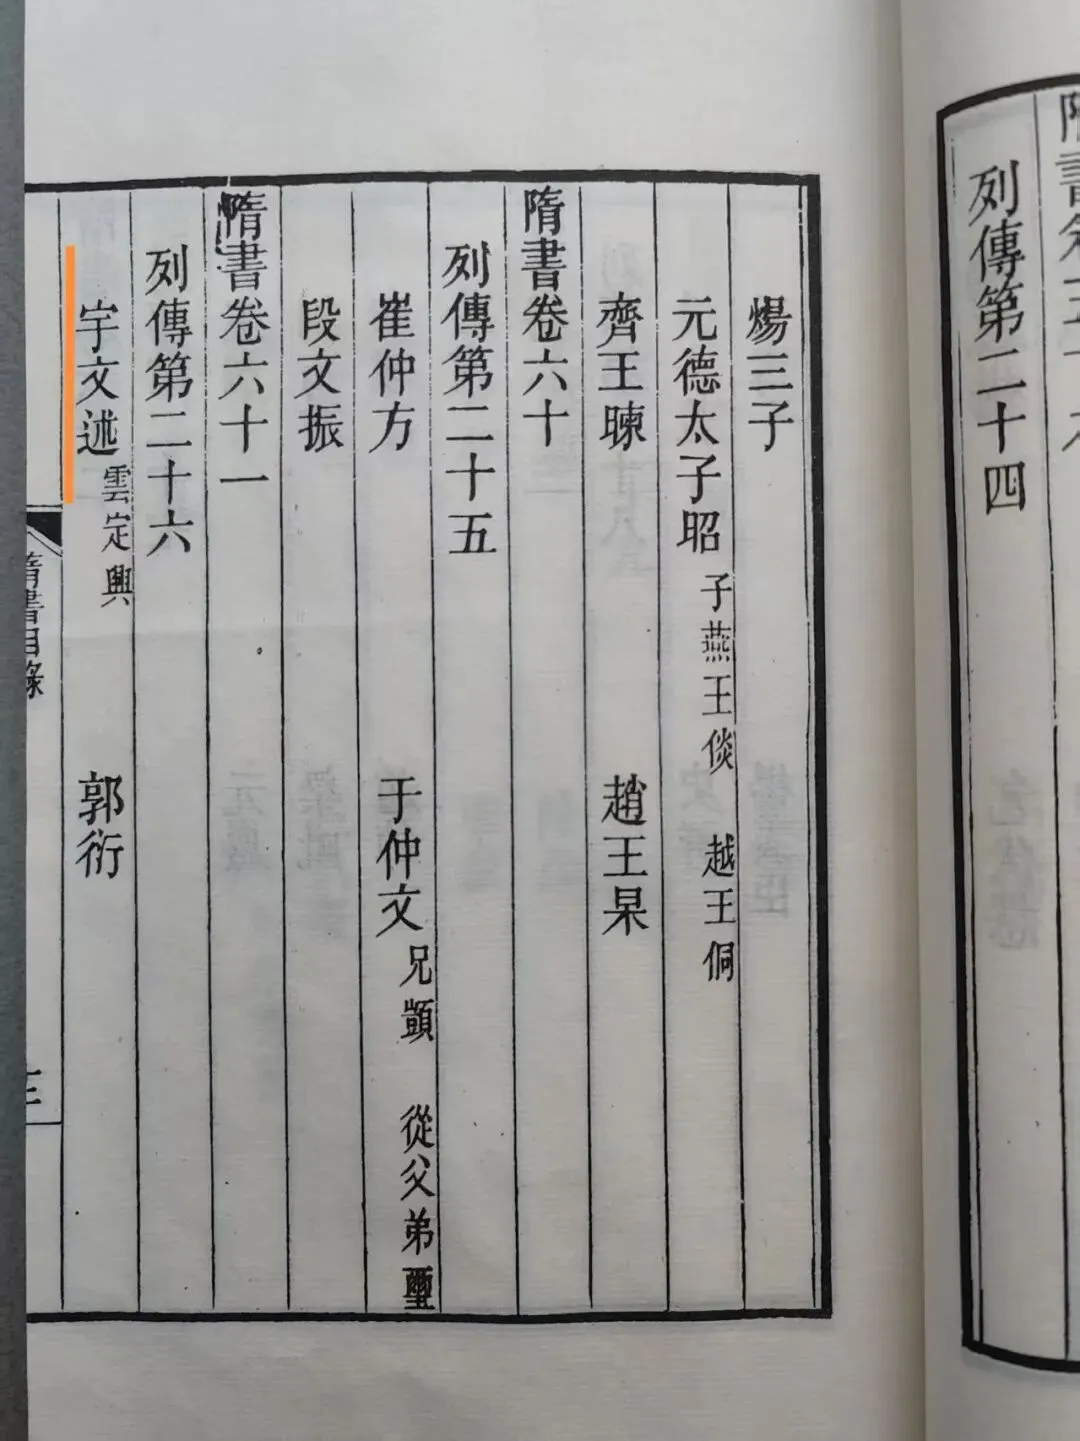 隋書卷五十九
列傳第二十四
煬三子
元德太子昭 子燕王倓 越王侗
齊王暕 趙王杲
隋書卷六十
列傳第二十五
崔仲方 于仲文 兄顗 從父弟璽
段文振
隋書卷六十一
列傳第二十六
宇文述 雲定興 郭衍
隋書目錄